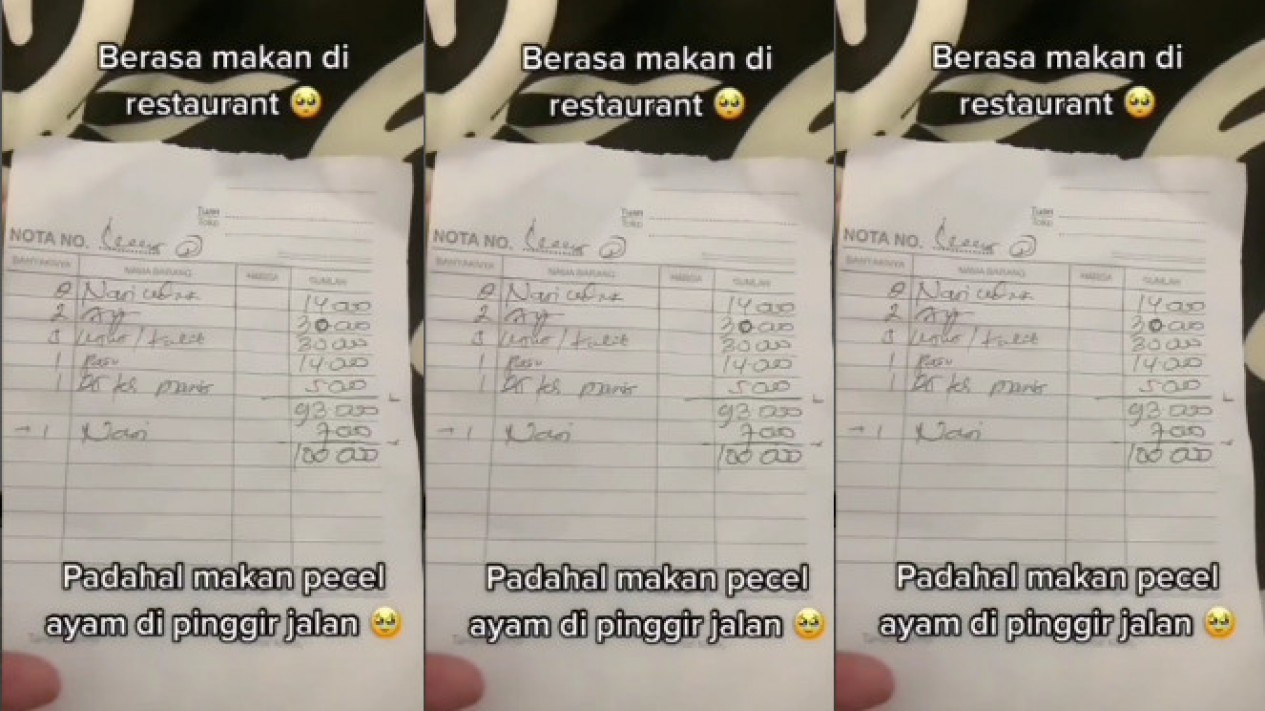 Berasa makan di
restaurant 🥹
Tuan
Toko
NOTA NO.
BANYAKNYA NAMA BARANG HARGA JUMLAH
Nasi 14.000
2 30.000
30.000
1 14.000
1 manis 5.000
93.000
→ 1 Nasi 7.000
100.000
Padahal makan pecel
ayam di pinggir jalan 🥹
Berasa makan di
restaurant 🥹
Tuan
Toko
NOTA NO.
BANYAKNYA NAMA BARANG HARGA JUMLAH
Nasi 14.000
2 30.000
30.000
1 14.000
1 manis 5.000
93.000
→ 1 Nasi 7.000
100.000
Padahal makan pecel
ayam di pinggir jalan 🥹
Berasa makan di
restaurant 🥹
Tuan
Toko
NOTA NO.
BANYAKNYA NAMA BARANG HARGA JUMLAH
Nasi 14.000
2 30.000
30.000
1 14.000
1 manis 5.000
93.000
→ 1 Nasi 7.000
100.000
Padahal makan pecel
ayam di pinggir jalan 🥹